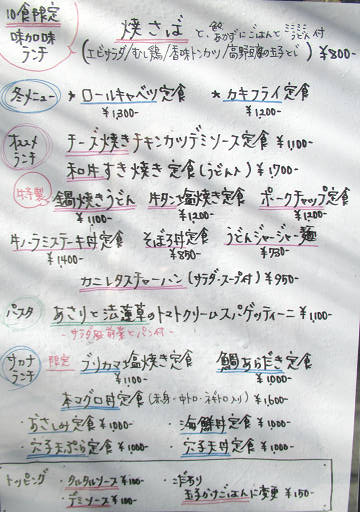 10食限定
味加味
ランチ
焼さば
と、 おかずにごはんと ミニうどん付
(エビサラダ/むし鶏/香味トンカツ/高野豆腐の玉子とじ) ¥800-
冬メニュー
* ロールキャベツ定食 ¥1,300-
* カキフライ定食 ¥1,200-
オススメ
ランチ
チーズ焼きチキンカツデミソース定食 ¥1,100-
和牛すき焼き定食(うどん入) ¥1,700-
特製
鍋焼きうどん ¥1,100-
牛タン塩焼き定食 ¥1,200-
ポークチャップ定食 ¥1,200-
牛ハラミステーキ丼定食 ¥1,400-
そぼろ丼定食 ¥850-
うどんジャージャー麺 ¥930-
カニレタスチャーハン(サラダ・スープ付) ¥950-
パスタ
あさりと法蓮草のトマトクリームスパゲッティーニ ¥1,100-
-サラダ、前菜とパン付-
サカナ
ランチ
限定
ブリカマ塩焼き定食 ¥1,100-
鯛あらだき定食 ¥1,000-
本マグロ丼定食(赤身・中トロ・ネギトロ入り) ¥1,600-
・おさしみ定食 ¥1,000-
・海鮮丼定食 ¥1,000-
・穴子天ぷら定食 ¥1,000-
・穴子天丼定食 ¥1,000-
トッピング
・タルタルソース ¥100-
・デミソース ¥100-
・こだわり
玉子かけごはんに変更 ¥150-